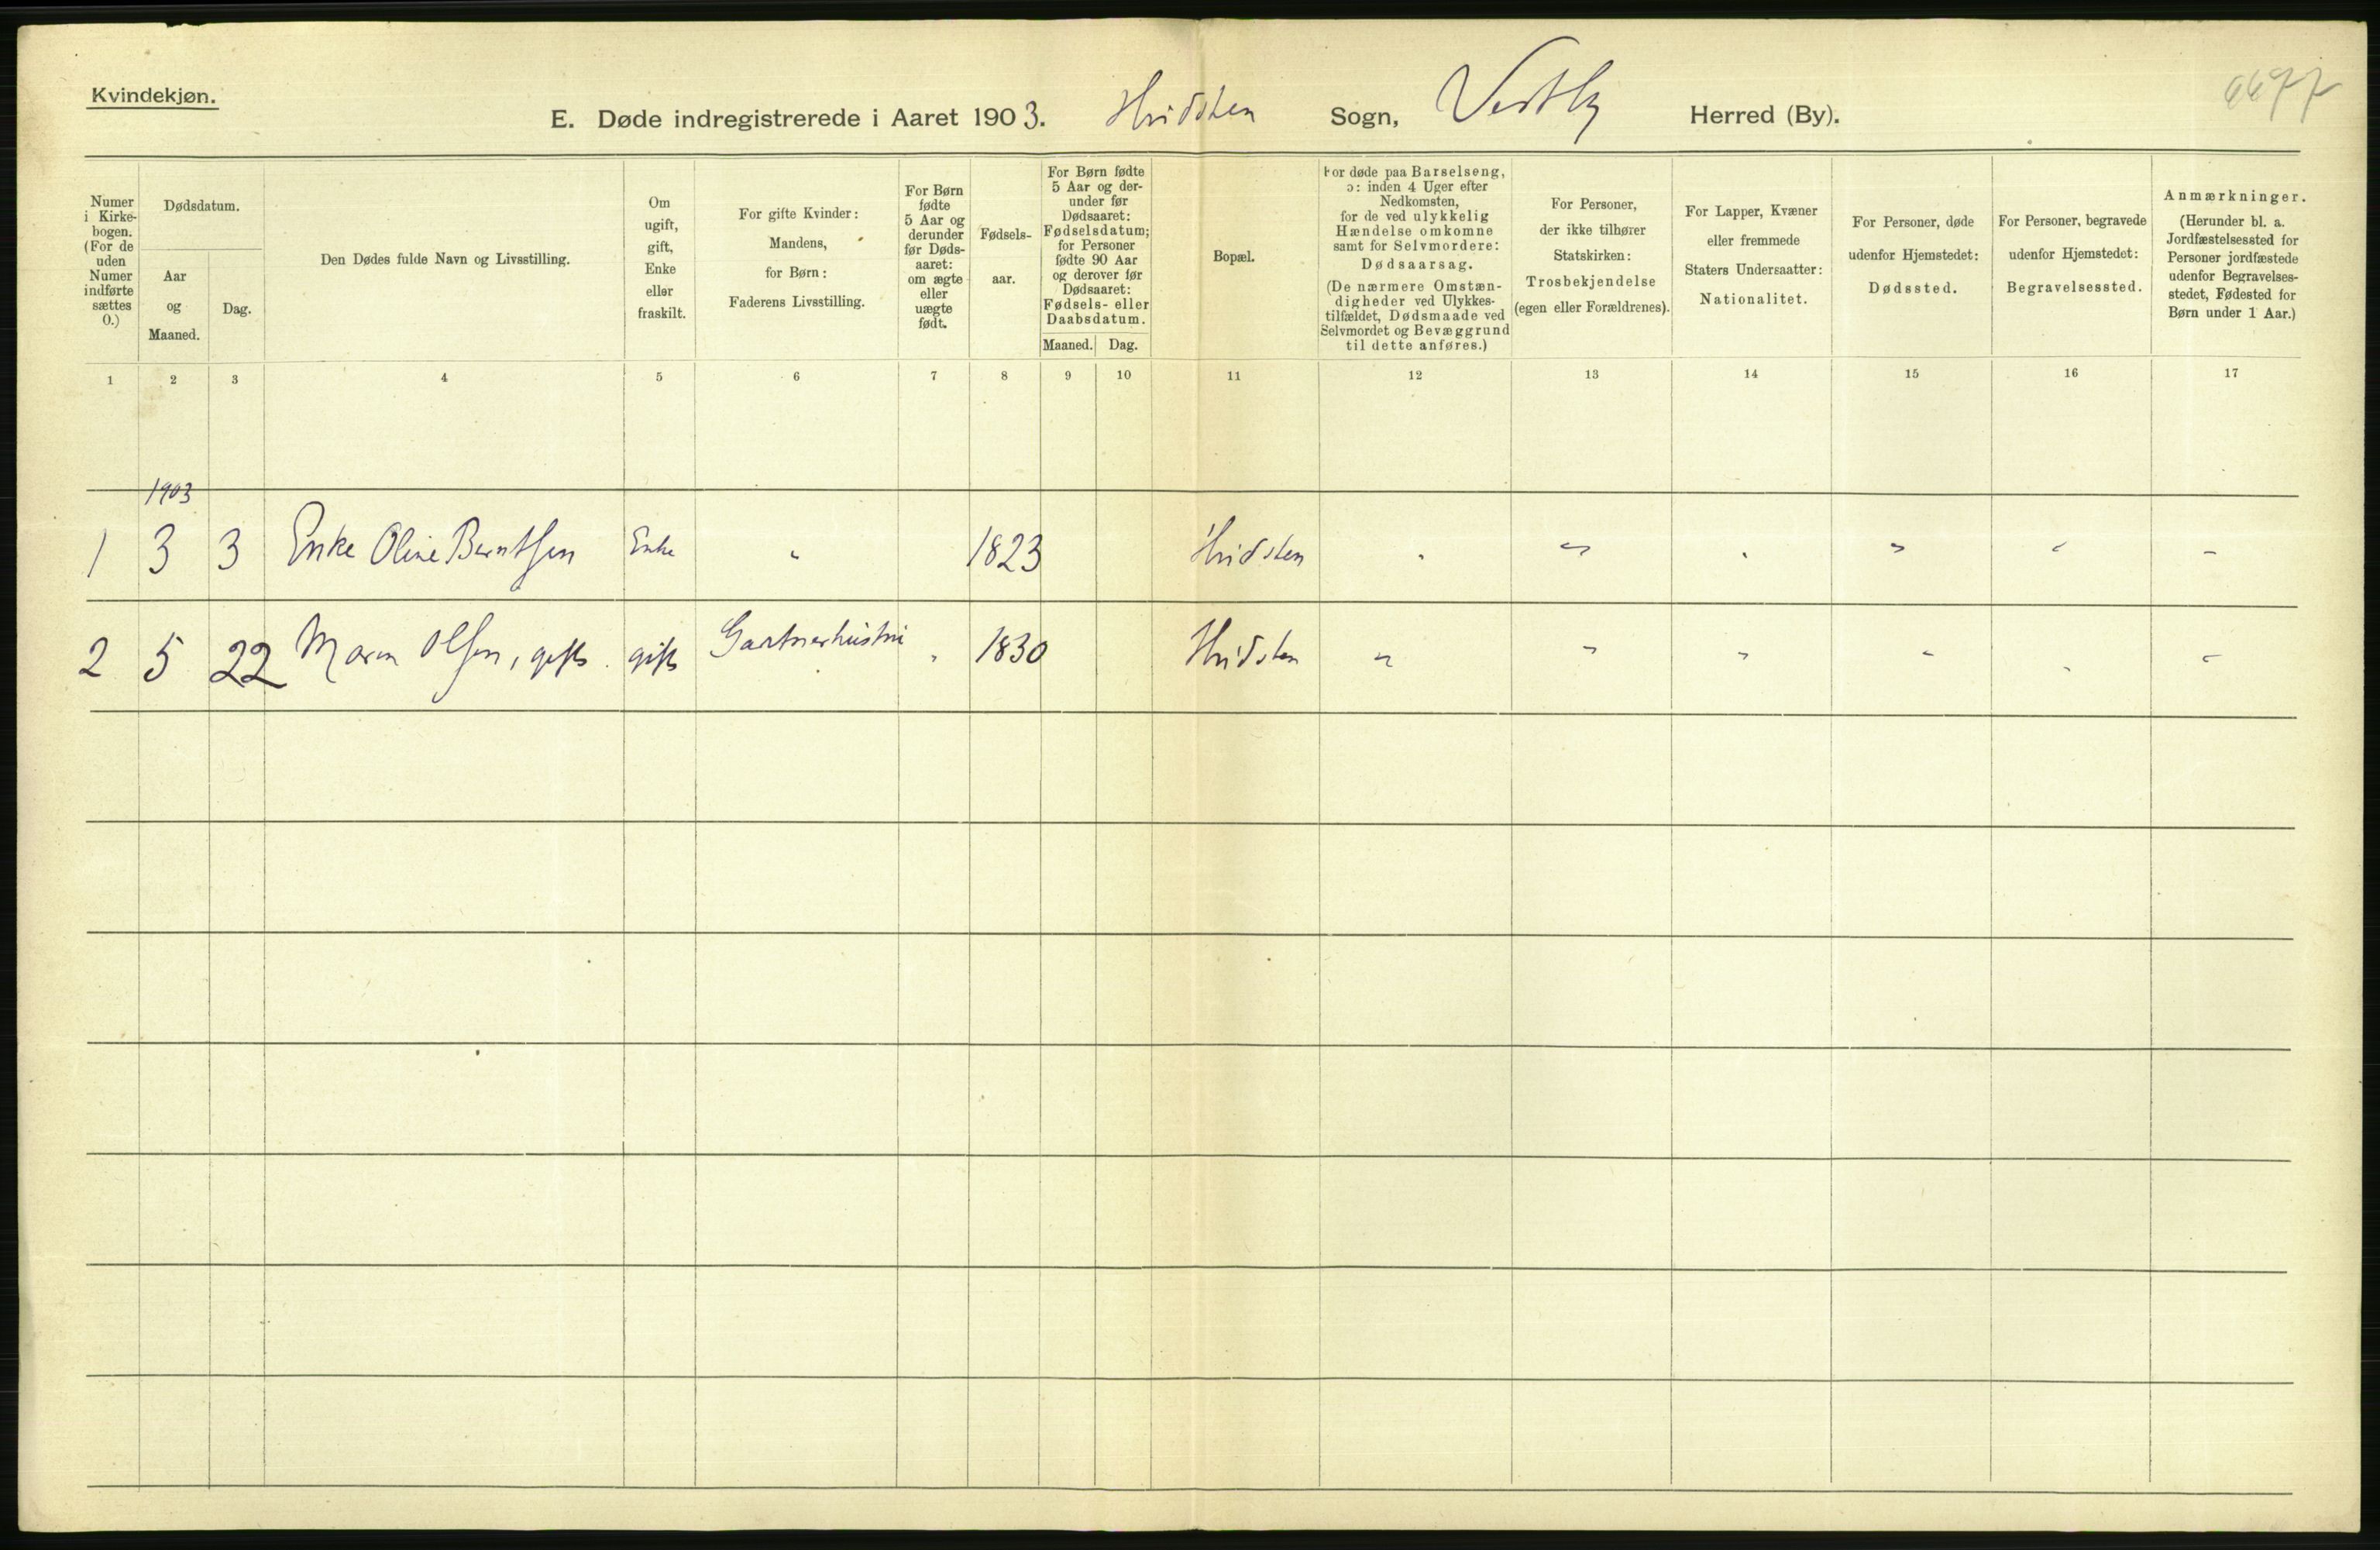 Kvindekjøn.
E. Døde indregistrerede i Aaret 1903. Hvidsten Sogn, Vestby Herred (By).
Numer i Kirkebogen. (For de uden Numer indførte sættes 0.)
Dødsdatum.
Aar og Maaned.
Dag.
Den Dødes fulde Navn og Livsstilling.
Om ugift, gift, Enke eller fraskilt.
For gifte Kvinder: Mandens, for Børn: Faderens Livsstilling.
For Børn fødte 5 Aar og derunder før Dødsaaret: om ægte eller uægte født.
Fødselsaar.
For Børn fødte 5 Aar og derunder før Dødsaaret: Fødselsdatum; for Personer fødte 90 Aar og derover før Dødsaaret: Fødsels- eller Daabsdatum.
Maaned. Dag.
Bopæl.
For døde paa Barselseng, ɔ: inden 4 Uger efter Nedkomsten, for de ved ulykkelig Hændelse omkomne samt for Selvmordere: Dødsaarsag. (De nærmere Omstændigheder ved Ulykkestilfældet, Dødsmaade ved Selvmordet og Bevæggrund til dette anføres.)
For Personer, der ikke tilhører Statskirken: Trosbekjendelse (egen eller Forældrenes).
For Lapper, Kvæner eller fremmede Staters Undersaatter: Nationalitet.
For Personer, døde udenfor Hjemstedet: Dødssted.
For Personer, begravede udenfor Hjemstedet: Begravelsessted.
Anmærkninger. (Herunder bl. a. Jordfæstelsessted for Personer jordfæstede udenfor Begravelsesstedet, Fødested for Børn under 1 Aar.)
1 2 3 4 5 6 7 8 9 10 11 12 13 14 15 16 17
1903
1 3 3 Enke Oline Berntsen Enke " 1823 Hvidsten " " " " " "
2 5 22 Maren Olsen, gift. gift Gartnerhustru " 1830 Hvidsten " " " " " "